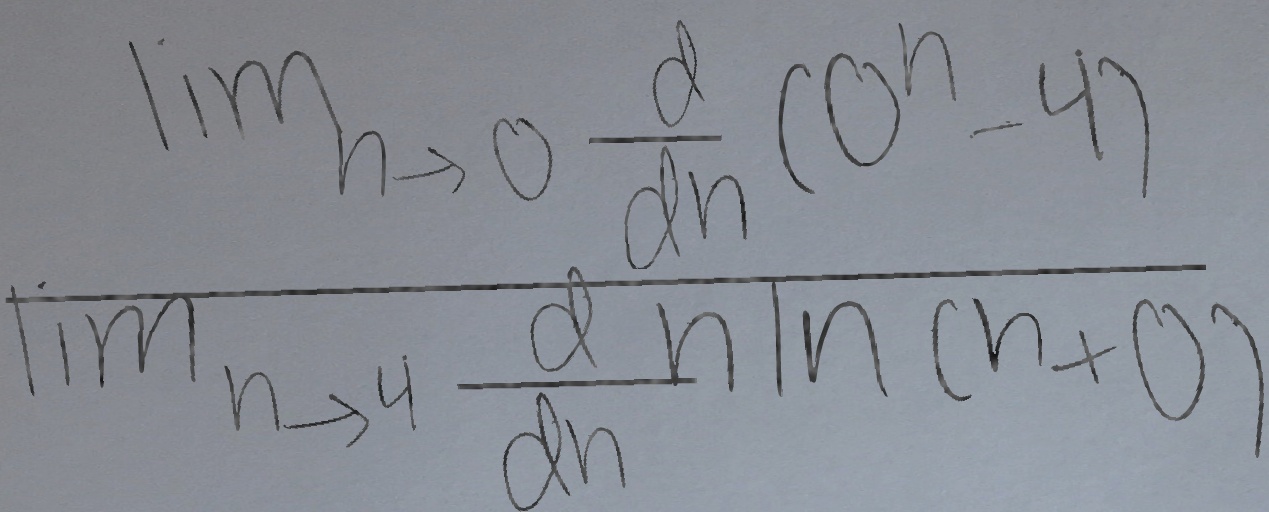 lim n→0 d/dn (0^n - 4)
lim n→4 d/dn n ln (n + 0)